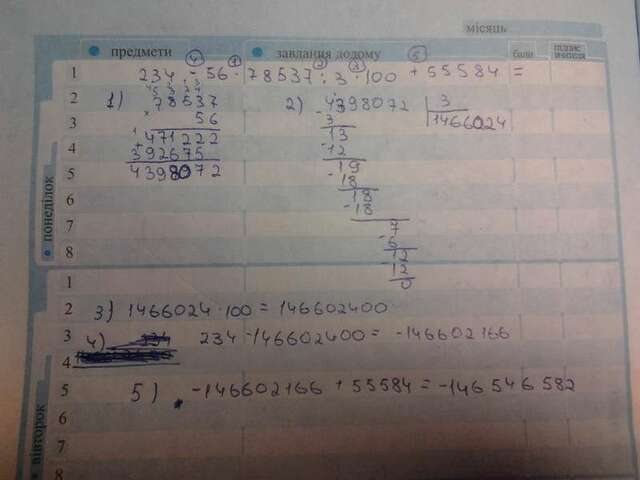 місяць
предмети завдання додому Бали підпис вчителя
④ ① ② ③ ⑤
1 234 - 56 · 78537 : 3 · 100 + 55584 =
2 1) 78537 2) 4398072 3
× 56 3 1466024
3 471222 13
4 + 392675 - 12
5 4398072 19
- 18
6 18
- 18
7 7
- 6
8 12
- 12
1 0
2 3) 1466024 · 100 = 146602400
3 4) 234 - 146602400 = -146602166
4
5 5) -146602166 + 55584 = -146 546 582
6
7
8
понеділок
вівторок